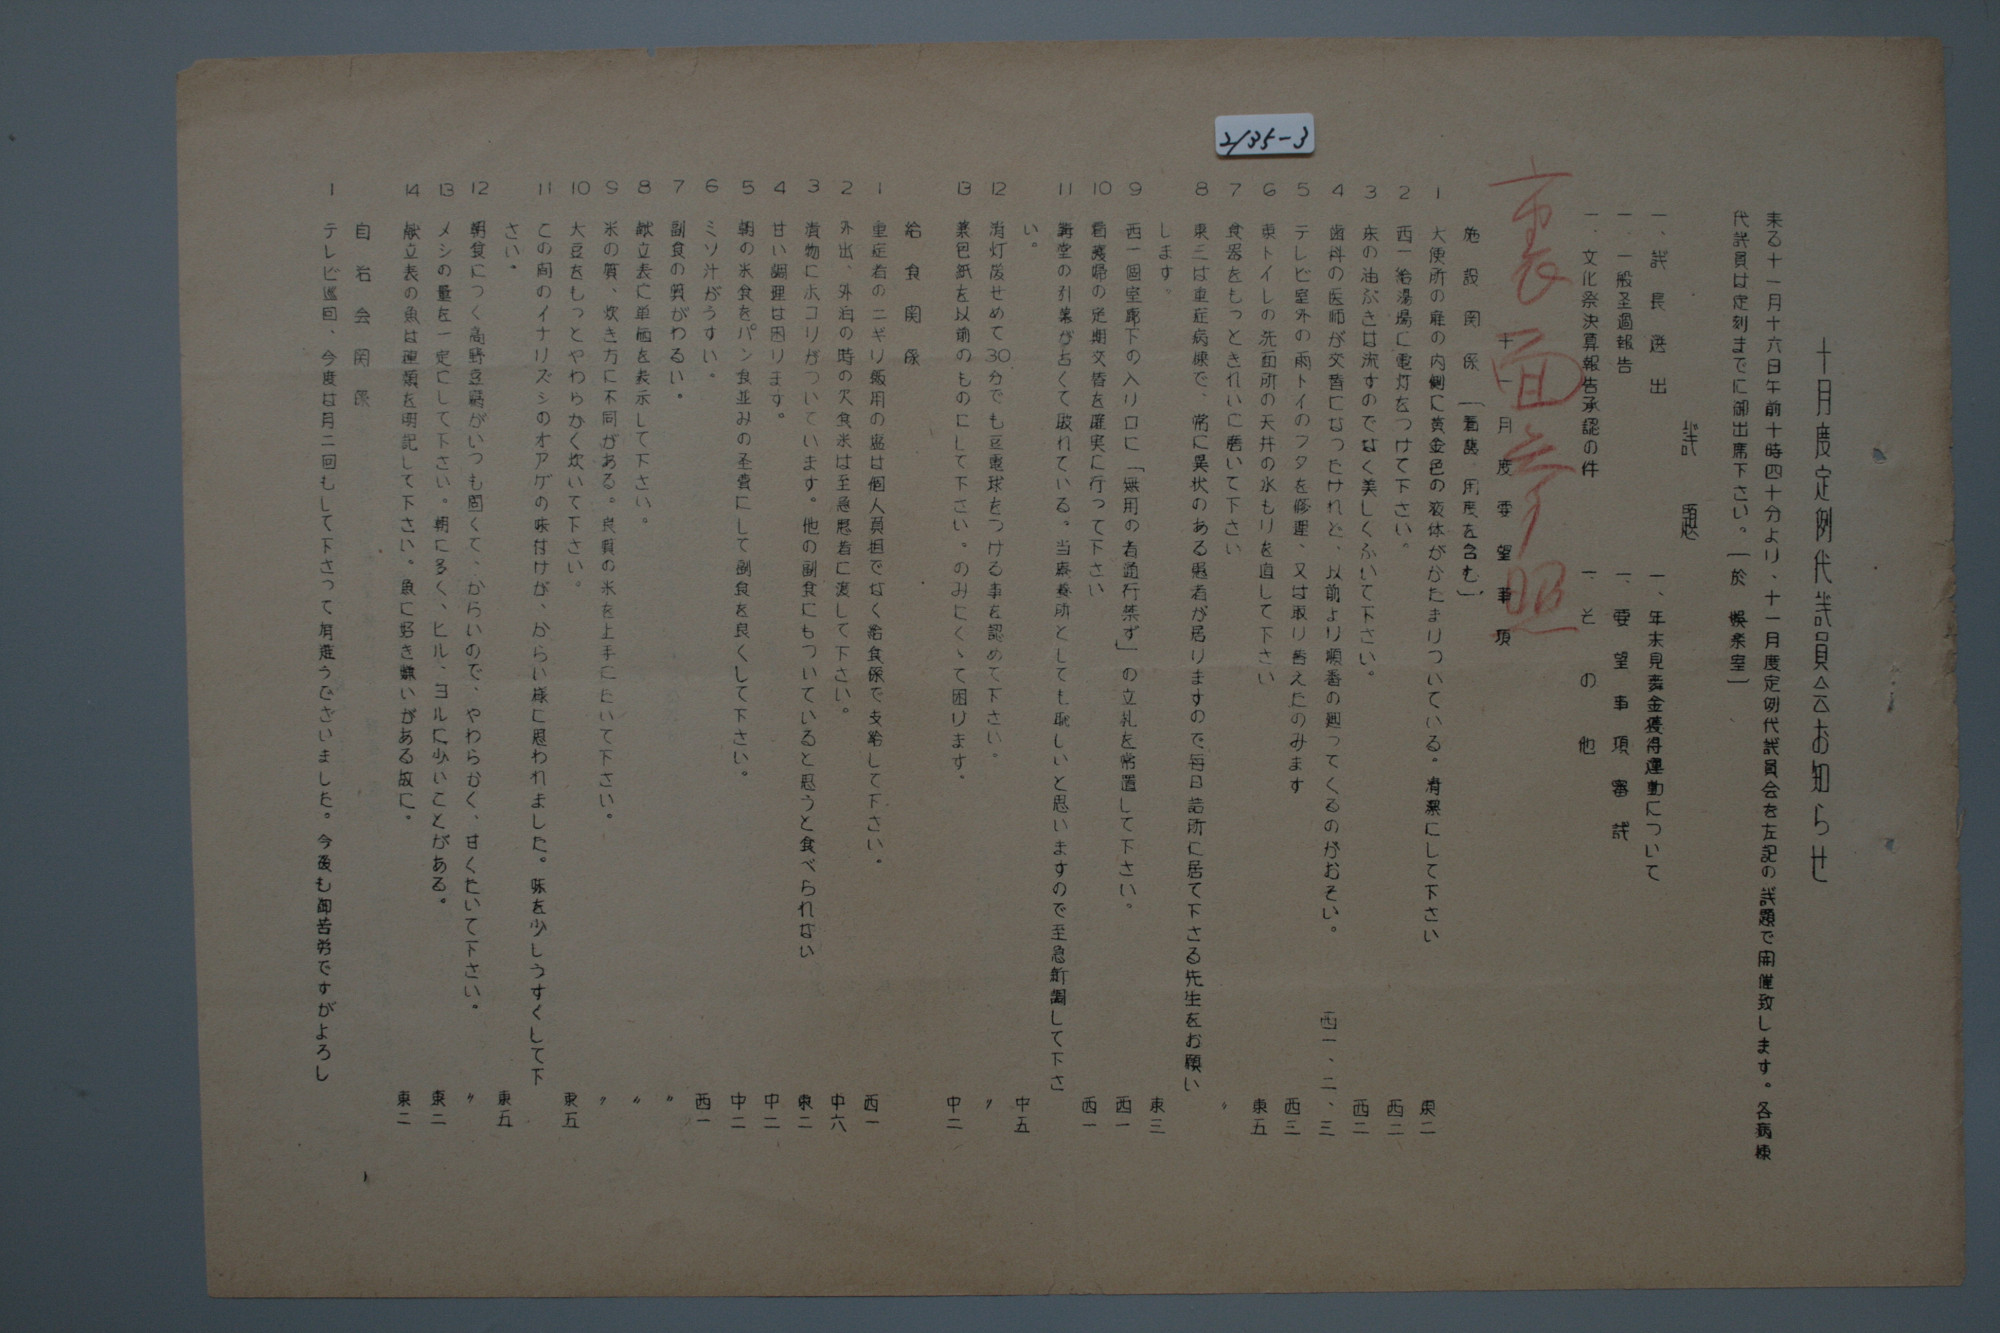 2135-3
十月度定例代議員会お知らせ
来る十一月十六日午前十時四十分より、十一月度定例代議員会を左記の議題で開催致します。各病棟
代議員は定刻までに御出席下さい。(於 娯楽室)
議 題
一、議長選出
一、年末見舞金獲得運動について
一、一般経過報告
一、要望事項審議
一、文化祭決算報告承認の件
一、その他
裏面参照
十一月度要望事項
施設関係(看護、用度を含む)
1 大便所の扉の内側に黄金色の液体がかたまりついている。清潔にして下さい 東二
2 西一給湯場に電灯をつけて下さい。 西二
3 床の油ぶきは流すのでなく美しくふいて下さい。 西二
4 歯科の医師が交替になったけれど、以前より順番の廻ってくるのがおそい。 西一、二、三
5 テレビ室外の雨トイのフタを修理、又は取り替えたのみます 西三
6 東トイレの洗面所の天井の水もりを直して下さい 東五
7 食器をもっときれいに磨いて下さい 〃
8 東三は重症病棟で、常に異状のある患者が居りますので毎日詰所に居て下さる先生をお願い
します。 東三
9 西一個室廊下の入り口に「無用の者通行禁ず」の立札を常置して下さい。 西一
10 看護婦の定期交替を確実に行って下さい 西一
11 講堂の引幕が古くて破れている。当療養所としても恥しいと思いますので至急新調して下さ
い。 中五
12 消灯後せめて30分でも豆電球をつける事を認めて下さい。 〃
13 薬包紙を以前のものにして下さい。のみにくゝて困ります。 中二
給食関係
1 重症者のニギリ飯用の塩は個人負担でなく給食係で支給して下さい。 西一
2 外出、外泊の時の欠食米は至急患者に渡して下さい。 中六
3 漬物にホコリがついています。他の副食にもついていると思うと食べられない 東二
4 甘い調理は困ります。 中二
5 朝の米食をパン食並みの経費にして副食を良くして下さい。 中二
6 ミソ汁がうすい。 西一
7 副食の質がわるい。 〃
8 献立表に単価を表示して下さい。 〃
9 米の質、炊き方に不同がある。良質の米を上手にたいて下さい。 〃
10 大豆をもっとやわらかく炊いて下さい。 東五
11 この間のイナリズシのオアゲの味付けが、からい様に思われました。味を少しうすくして下
さい。 東五
12 朝食につく高野豆腐がいつも固くて、からいので、やわらかく、甘くたいて下さい。 〃
13 メシの量を一定にして下さい。朝に多く、ヒル、ヨルに少いことがある。 東二
14 献立表の魚は種類を明記して下さい。魚に好き嫌いがある故に。 東二
自治会関係
1 テレビ巡回、今度は月二回もして下さって有難うございました。今後も御苦労ですがよろし